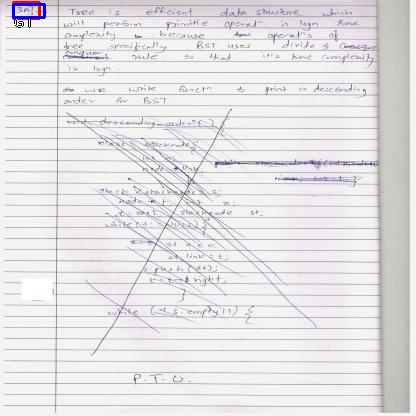 3A)
BST
Tree is efficient data structure which
will perform primitive operatn in logn time
complexity because operatns of
tree specifically BST uses divide &
conquer rule so that it's time complexity
is logn.
we write functn to print in descending
order for BST.
void descending_order()
class stacknode {
int n;
node * link;
stack <stacknode> s;
node * t; int n;
t = root stacknode st;
while (t != NULL) {
st n = 0;
st link = t;
s.push (st);
t = t → right;
}
while (! s.empty()) {
P.T.O.